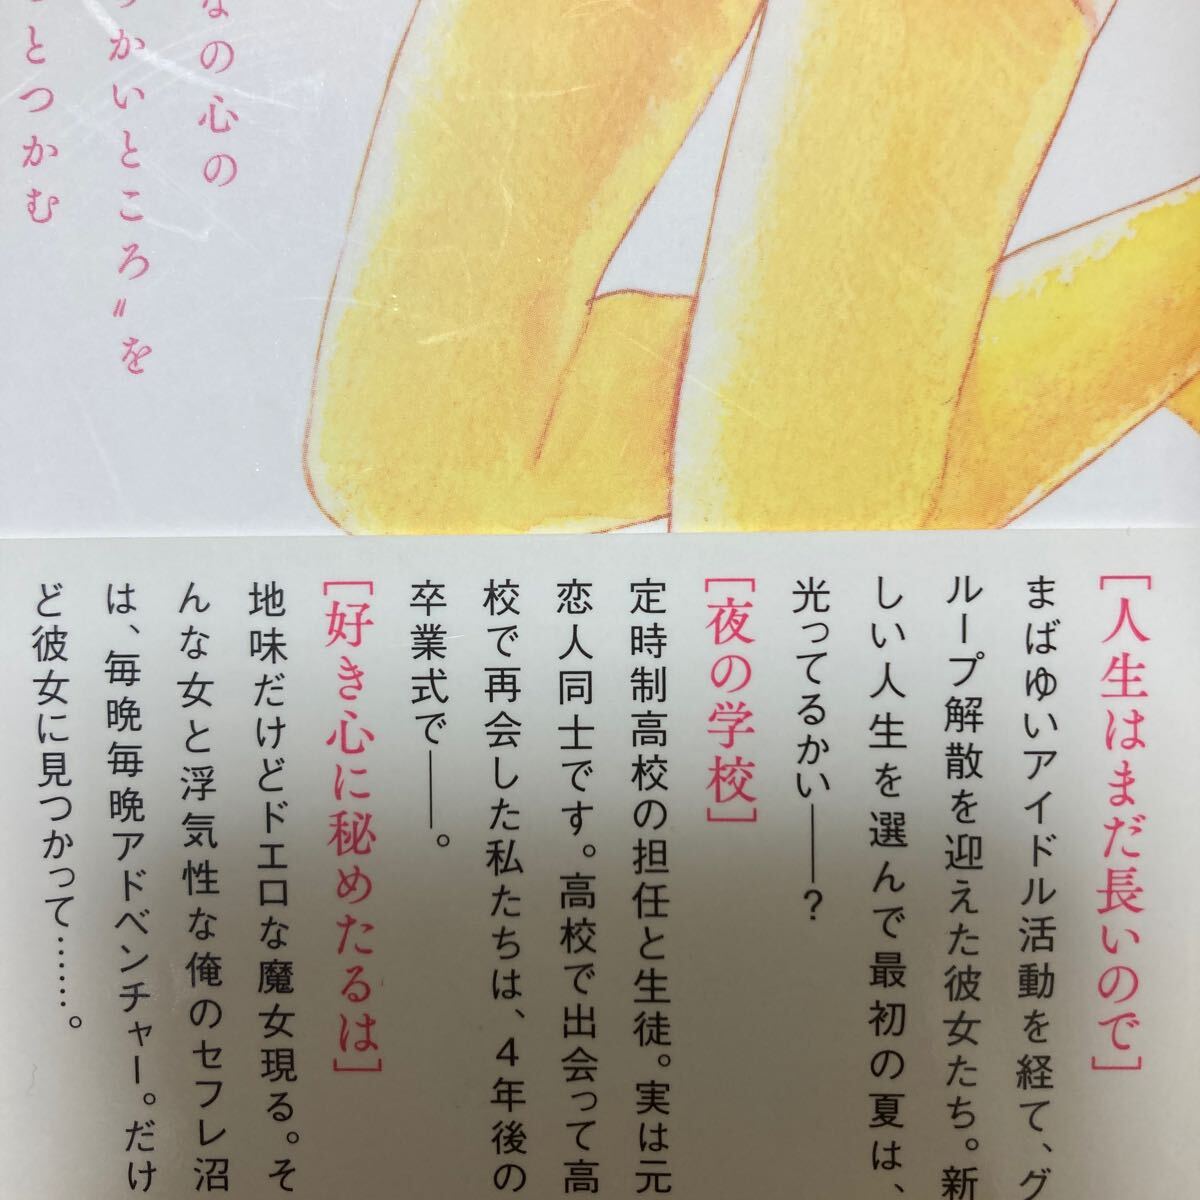 なの心の
かいところ〟を
とつかむ
［人生はまだ長いので］
まばゆいアイドル活動を経て、グ
ループ解散を迎えた彼女たち。新
しい人生を選んで最初の夏は、
光ってるかい――？
［夜の学校］
定時制高校の担任と生徒。実は元
恋人同士です。高校で出会って高
校で再会した私たちは、４年後の
卒業式で――。
［好き心に秘めたるは］
地味だけどドエロな魔女現る。そ
んな女と浮気性な俺のセフレ沼
は、毎晩毎晩アドベンチャー。だけ
ど彼女に見つかって……。